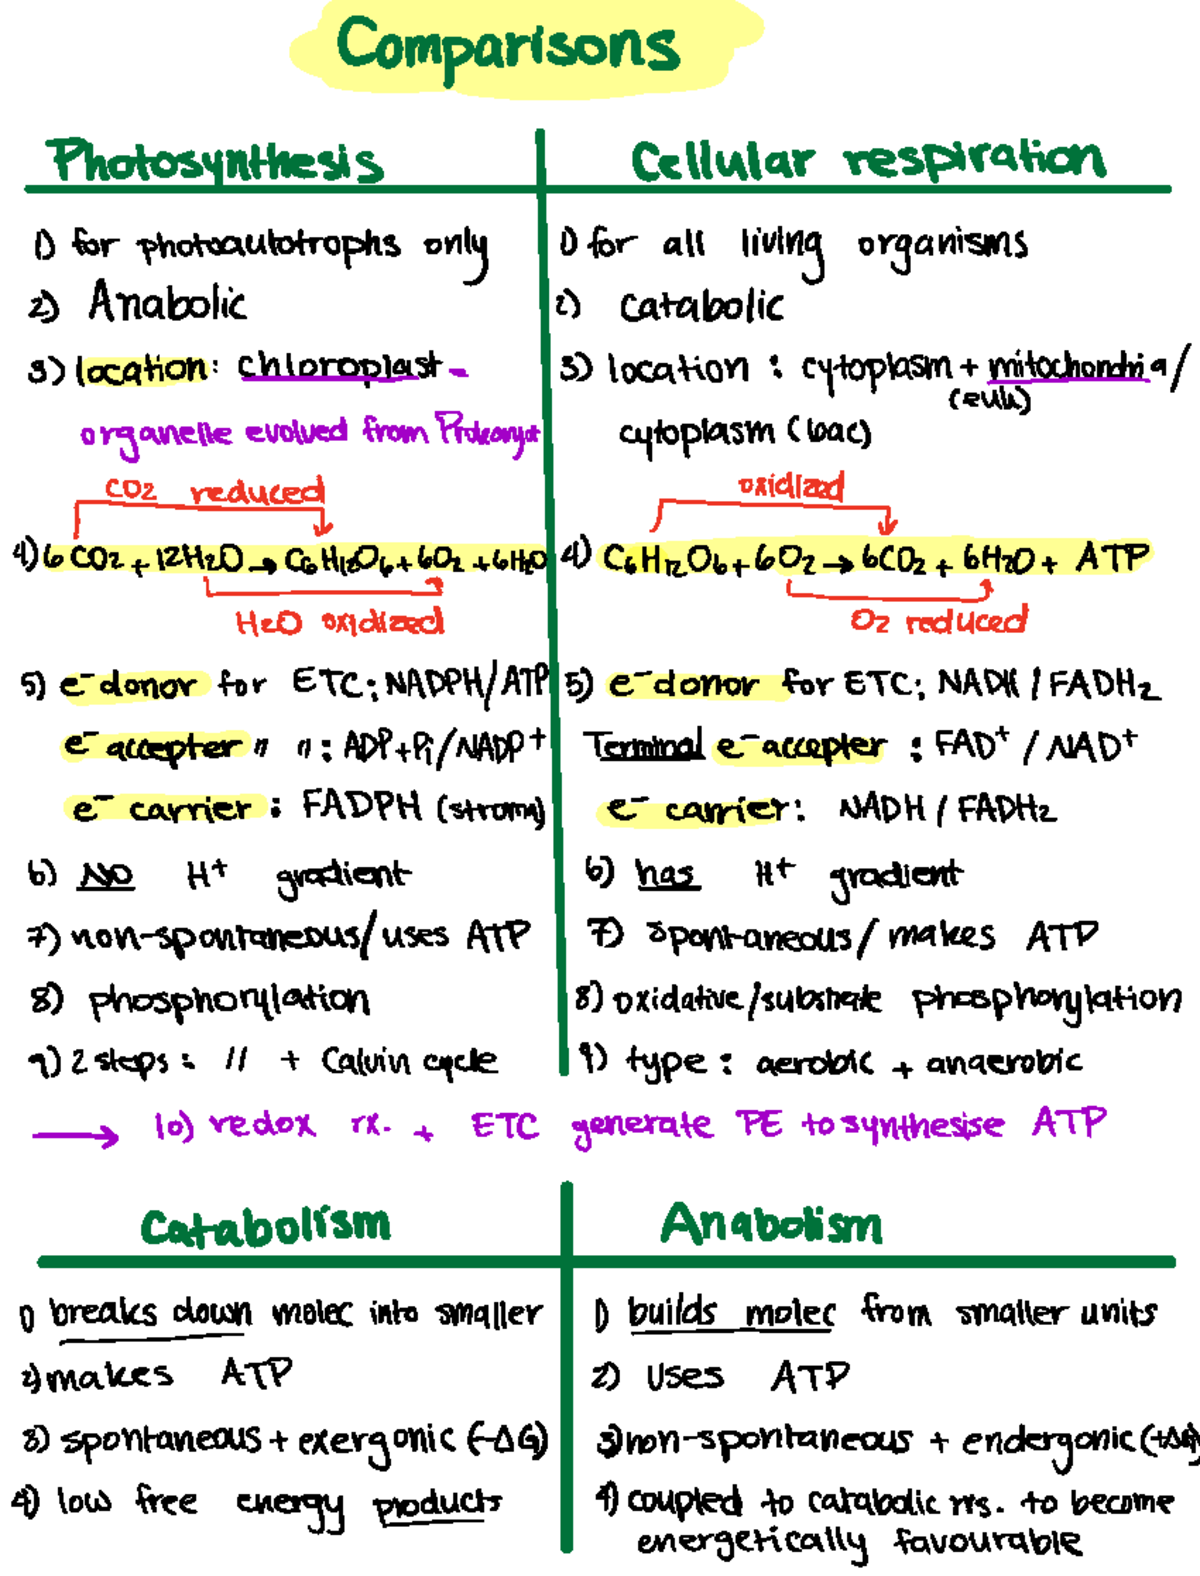 Comparisons
Photosynthesis
1) for photoautotrophs only
2) Anabolic
3) location: chloroplast -
organelle evolved from Prokaryot
CO2 reduced
4) 6CO2 + 12H2O → C6H12O6 + 6O2 + 6H2O
H2O oxidized
5) e- donor for ETC: NADPH/ATP
e- accepter " " : ADP+Pi/NADP+
e- carrier : FADPH (stroma)
6) NO H+ gradient
7) non-spontaneous/uses ATP
8) phosphorylation
9) 2 steps : // + Calvin cycle
Cellular respiration
1) for all living organisms
2) catabolic
3) location : cytoplasm + mitochondria/
(euk)
cytoplasm (bac)
oxidized
4) C6H12O6 + 6O2 → 6CO2 + 6H2O + ATP
O2 reduced
5) e- donor for ETC: NADH / FADH2
Terminal e- accepter : FAD+ / NAD+
e- carrier: NADH / FADH2
6) has H+ gradient
7) spontaneous/makes ATP
8) oxidative/substrate phosphorylation
9) type : aerobic + anaerobic
→ 10) redox rx. + ETC generate PE to synthesise ATP
Catabolism
1) breaks down molec into smaller
2) makes ATP
3) spontaneous + exergonic (-ΔG)
4) low free energy products
Anabolism
1) builds molec from smaller units
2) uses ATP
3) non-spontaneous + endergonic (+ΔG)
4) coupled to catabolic rxs. to become
energetically favourable